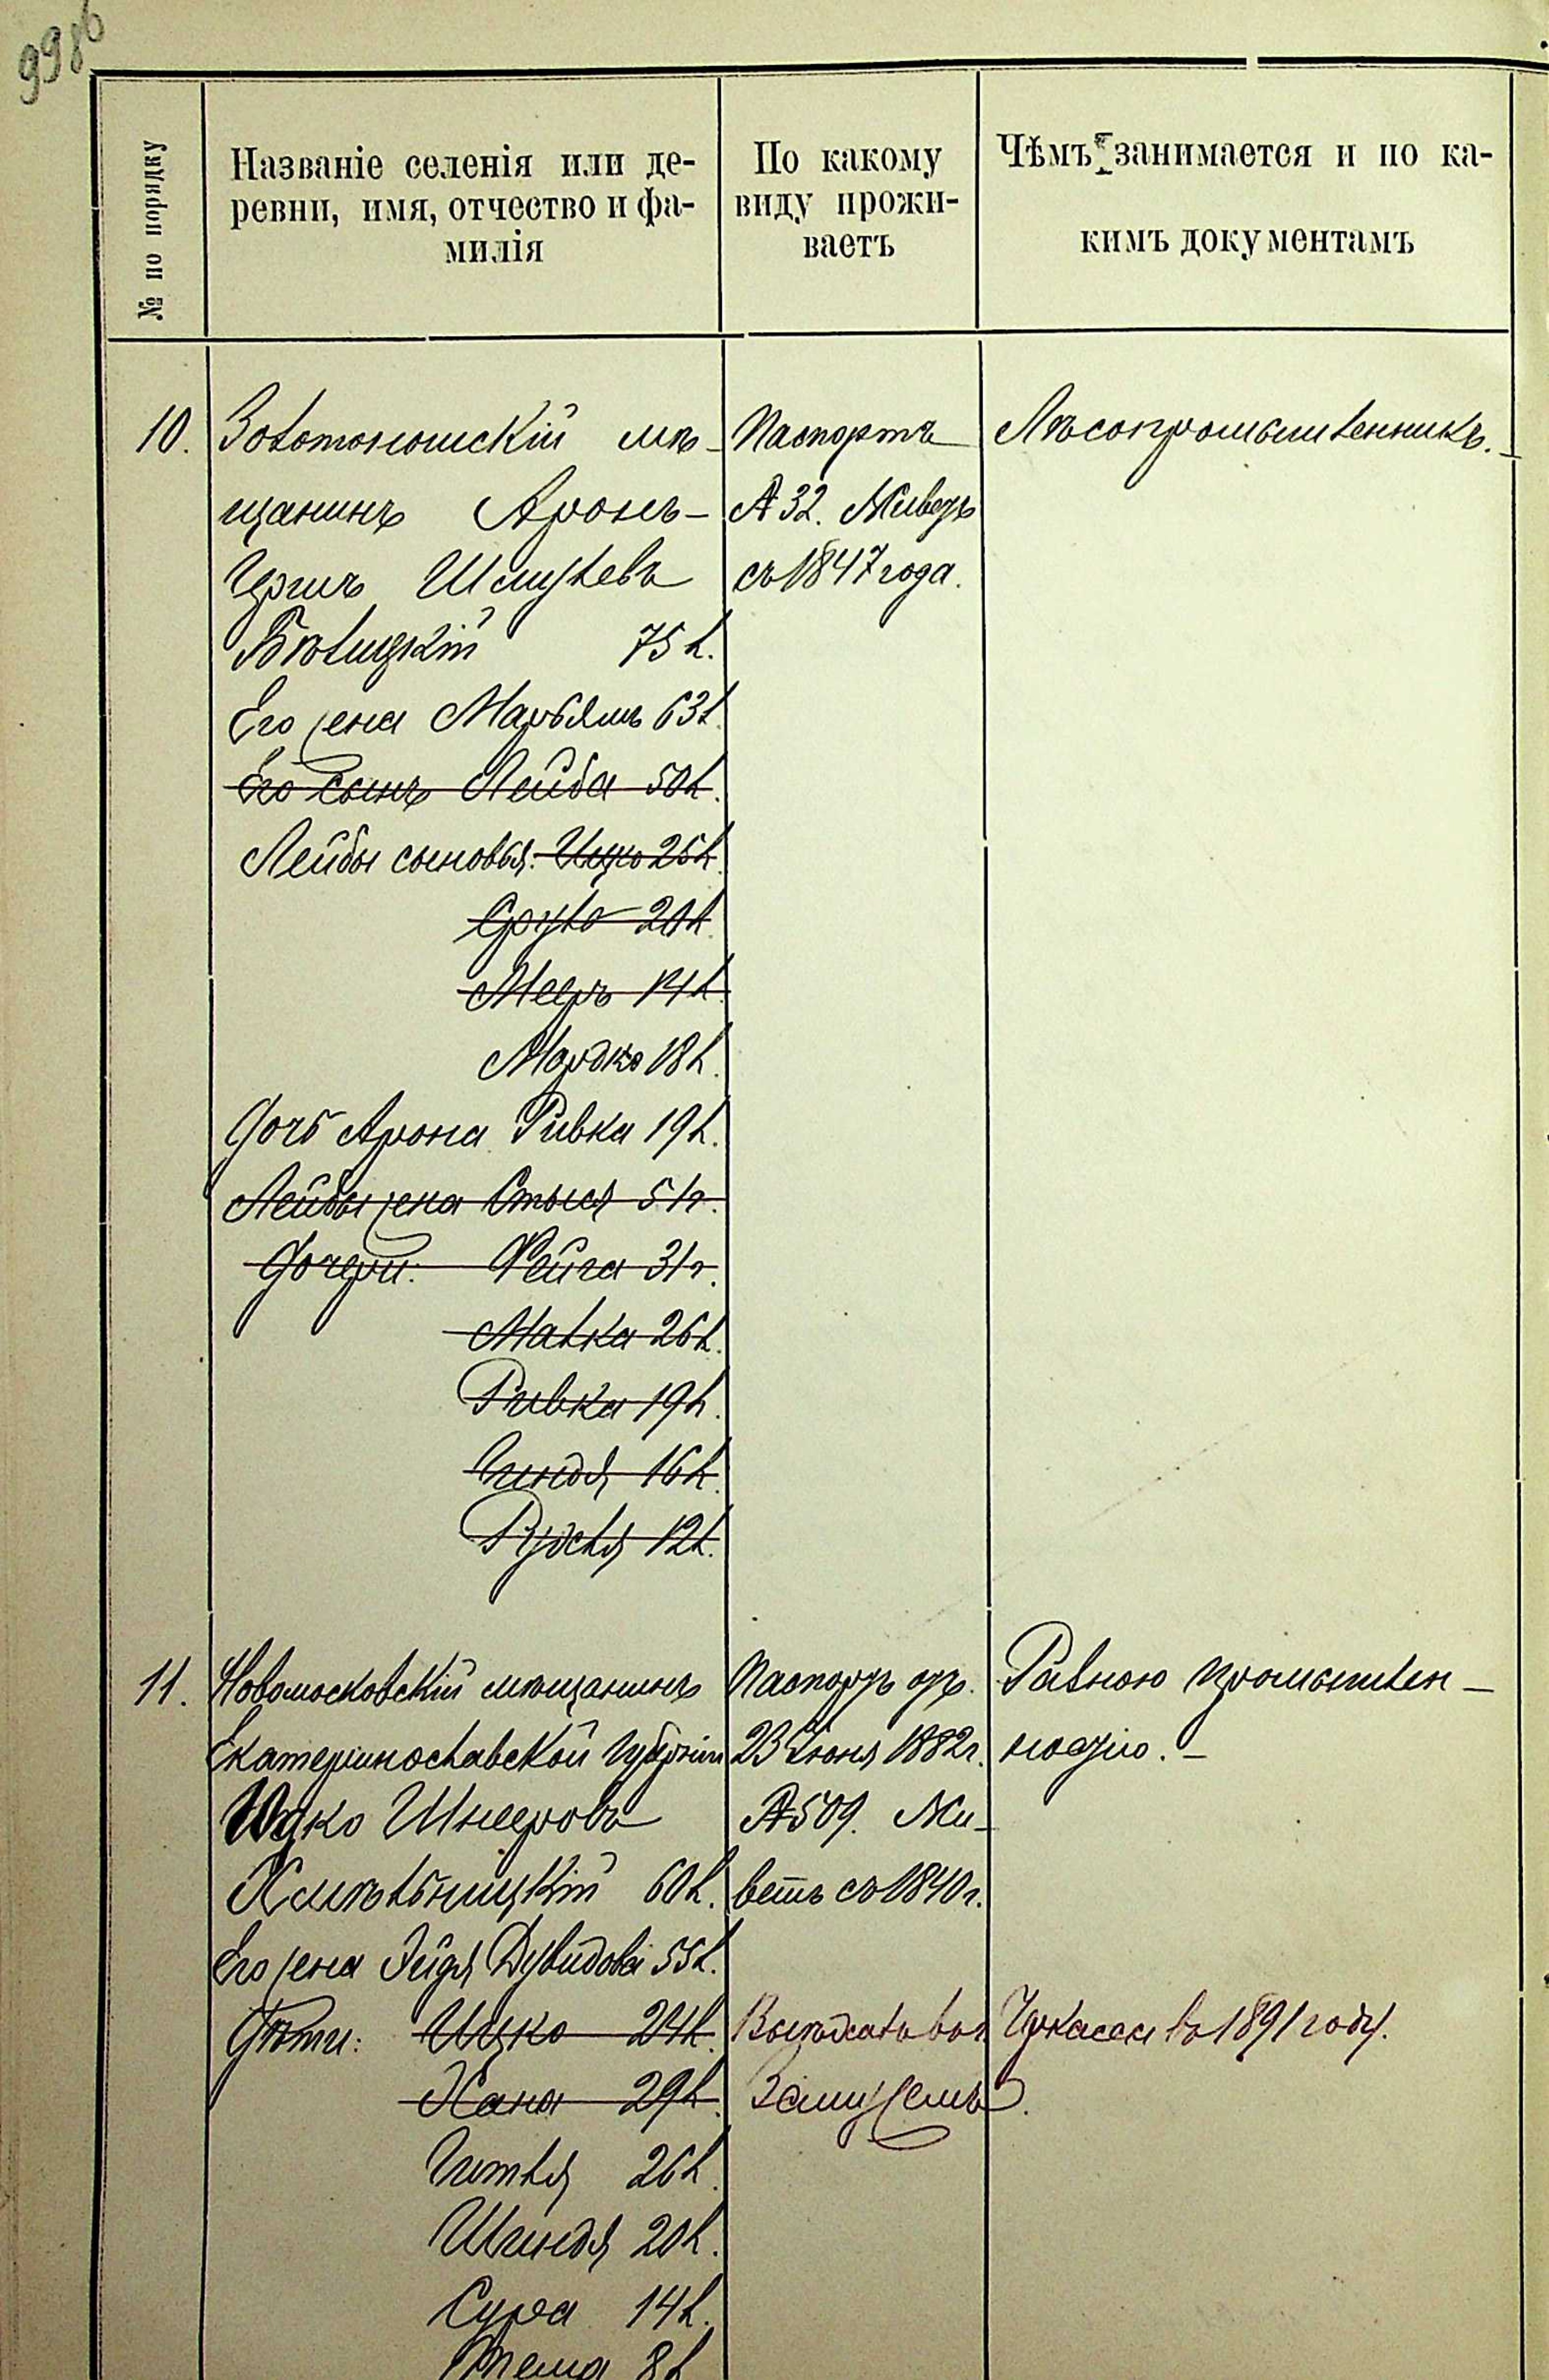 998б
№ по порядку
Названіе селенія или де-
ревни, имя, отчество и фа-
милія
По какому
виду прожи-
ваетъ
Чѣмъ занимается и по ка-
кимъ документамъ
10. Золотоношскій мѣ-
щанинъ Аронъ-
Шмулевъ
Бѣлицкій 75 л.
Его жена Марьямъ 63 л.
Его сынъ Лейба 50 л.
Лейбы сыновья: Ицко 25 л.
Сруль 20 л.
Мееръ 14 л.
Мордко 18 л.
Дочь Арона Ривка 19 л.
Лейбы жена Стыся 51 г.
Дочери: Фейга 31 г.
Малка 26 л.
Ривка 19 л.
Гиндя 16 л.
Рудля 12 л.
Паспортъ
№ 32. Живетъ
съ 1847 года.
Лѣсопромышленникъ.-
11. Новомосковскій мѣщанинъ
Екатеринославской губерніи
Ицко Шнееровъ
Хмѣльницкій 60 л.
Его жена Эйдя Дувидова 55 л.
Дѣти: Ицко 24 л.
Хана 29 л.
Гитля 26 л.
Шиндя 20 л.
Сура 14 л.
8 л
Паспортъ отъ
23 Іюня 1882 г.
№ 509. Жи-
ветъ съ 1840 г.
Разною промышлен-
ностію.-
Выѣхалъ въ г. Черкассы въ 1891 году.
Замужемъ.